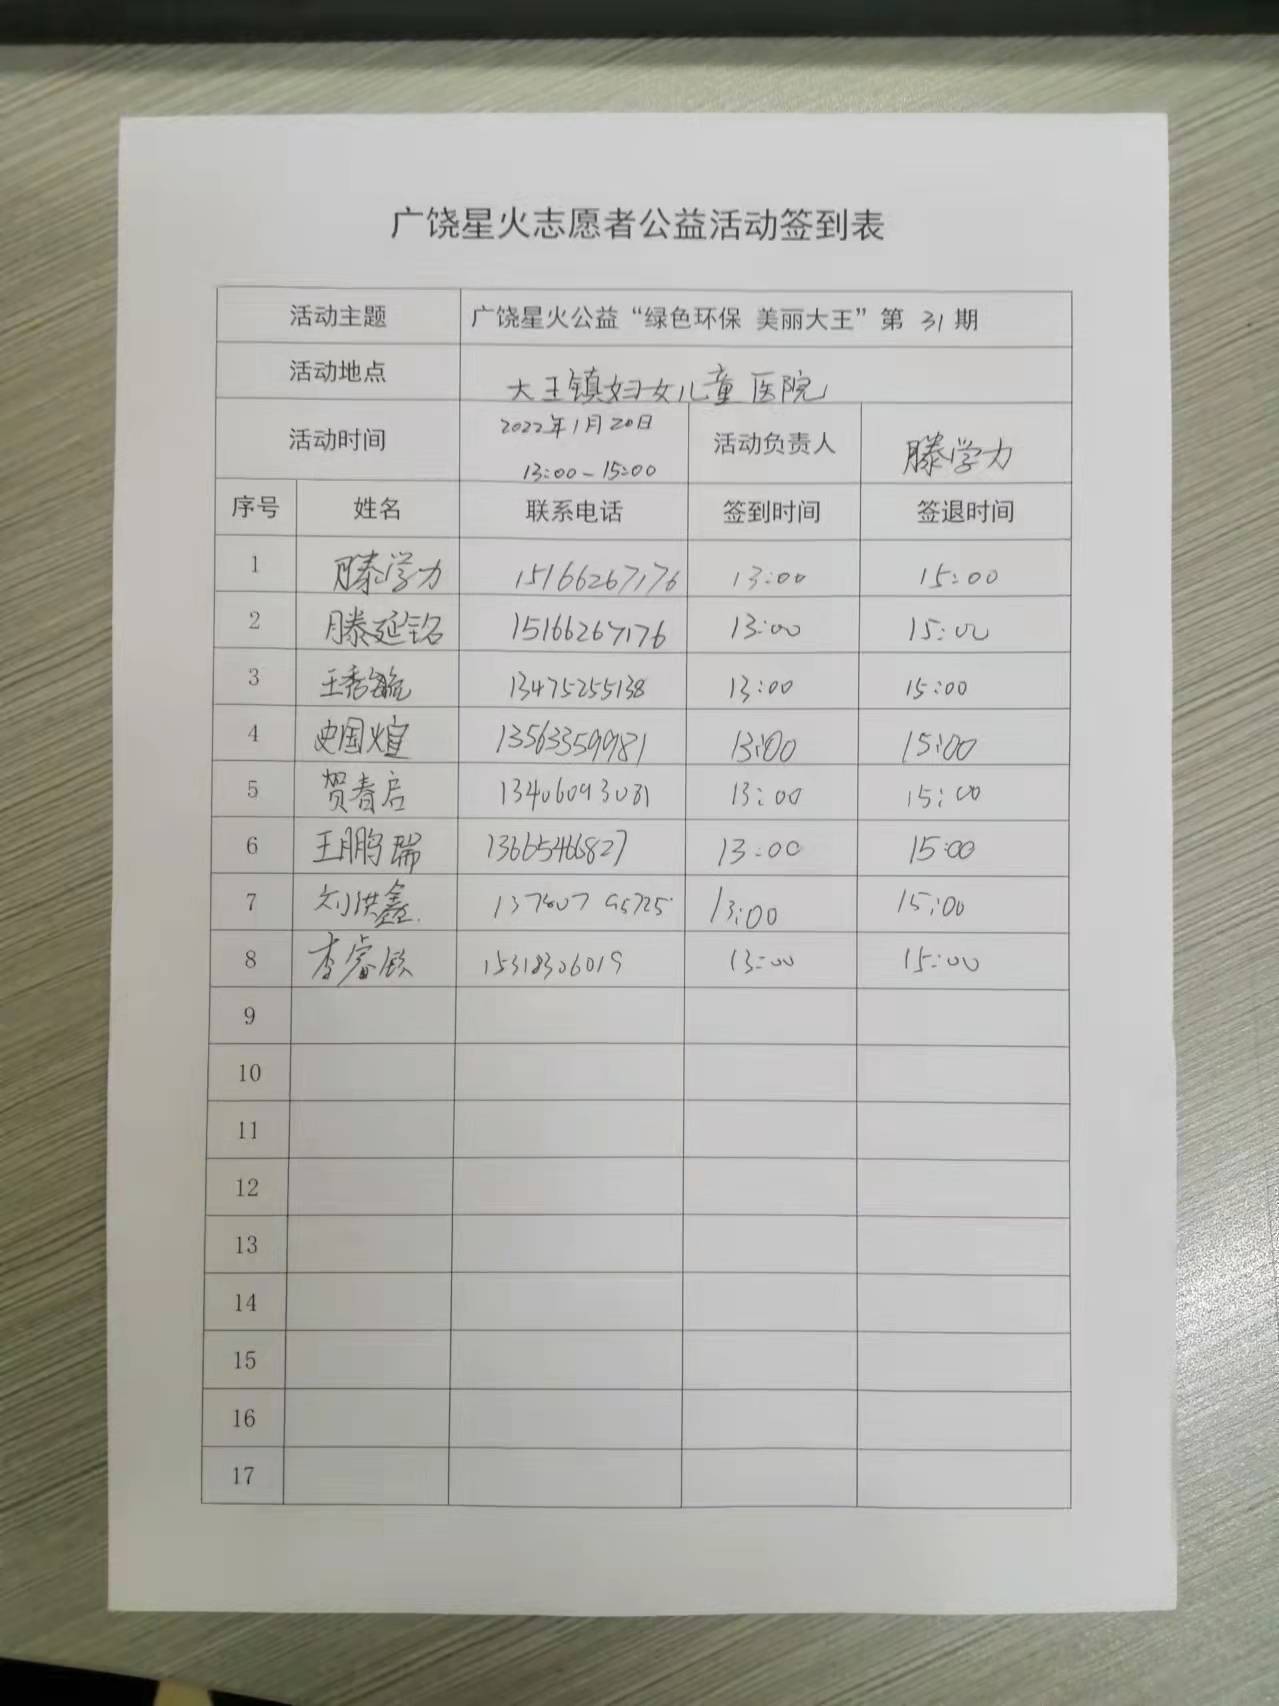 广饶星火志愿者公益活动签到表
活动主题 广饶星火公益“绿色环保 美丽大王”第 31 期
活动地点 大王镇妇女儿童医院
活动时间 2022年1月20日 13:00-15:00 活动负责人 滕学力
序号 姓名 联系电话 签到时间 签退时间
1 滕学力 15166267176 13:00 15:00
2 滕延铭 15166267176 13:00 15:00
3 王秀毓 13475255138 13:00 15:00
4 史国煊 13563359981 13:00 15:00
5 贺春启 13406093031 13:00 15:00
6 王鹏瑞 13665466827 13:00 15:00
7 刘洪鑫 13:00 15:00
8 李睿欣 15318306019 13:00 15:00
9
10
11
12
13
14
15
16
17